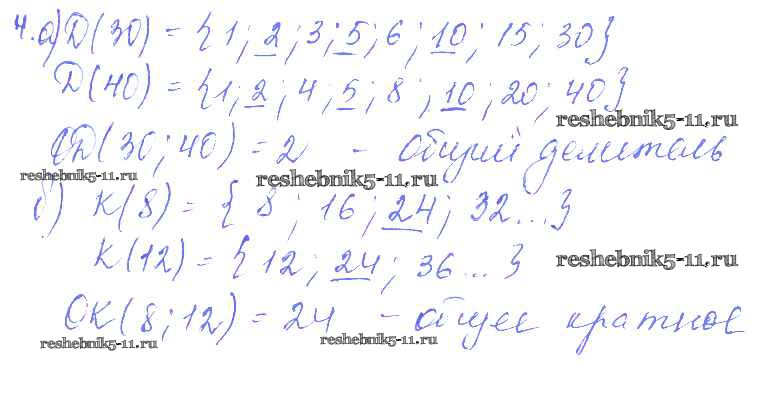 4. а) Д(30) = {1; 2; 3; 5; 6; 10; 15; 30}
Д(40) = {1; 2; 4; 5; 8; 10; 20; 40}
reshebnik5-11.ru
ОД(30; 40) = 2 - общий делитель
reshebnik5-11.ru
reshebnik5-11.ru
б) К(8) = {8; 16; 24; 32...}
К(12) = {12; 24; 36...}
reshebnik5-11.ru
ОК(8; 12) = 24 - общее кратное
reshebnik5-11.ru
reshebnik5-11.ru